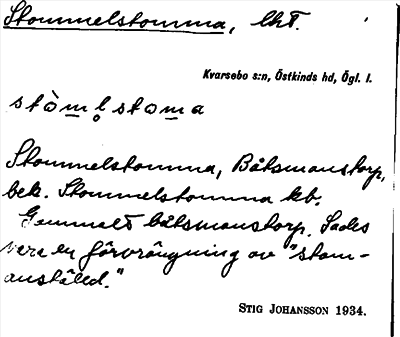 Stommelstomma, lht.
Kvarsebo s:n, Östkinds hd, Ögl. l.
stòm̲l̥stom̲a
Stommelstomma, Båtsmanstorp,
bek. Stommelstomma kb.
Gammalt båtsmanstorp. Sades
vara en förvrängning av "stom-
anställd."
STIG JOHANSSON 1934.